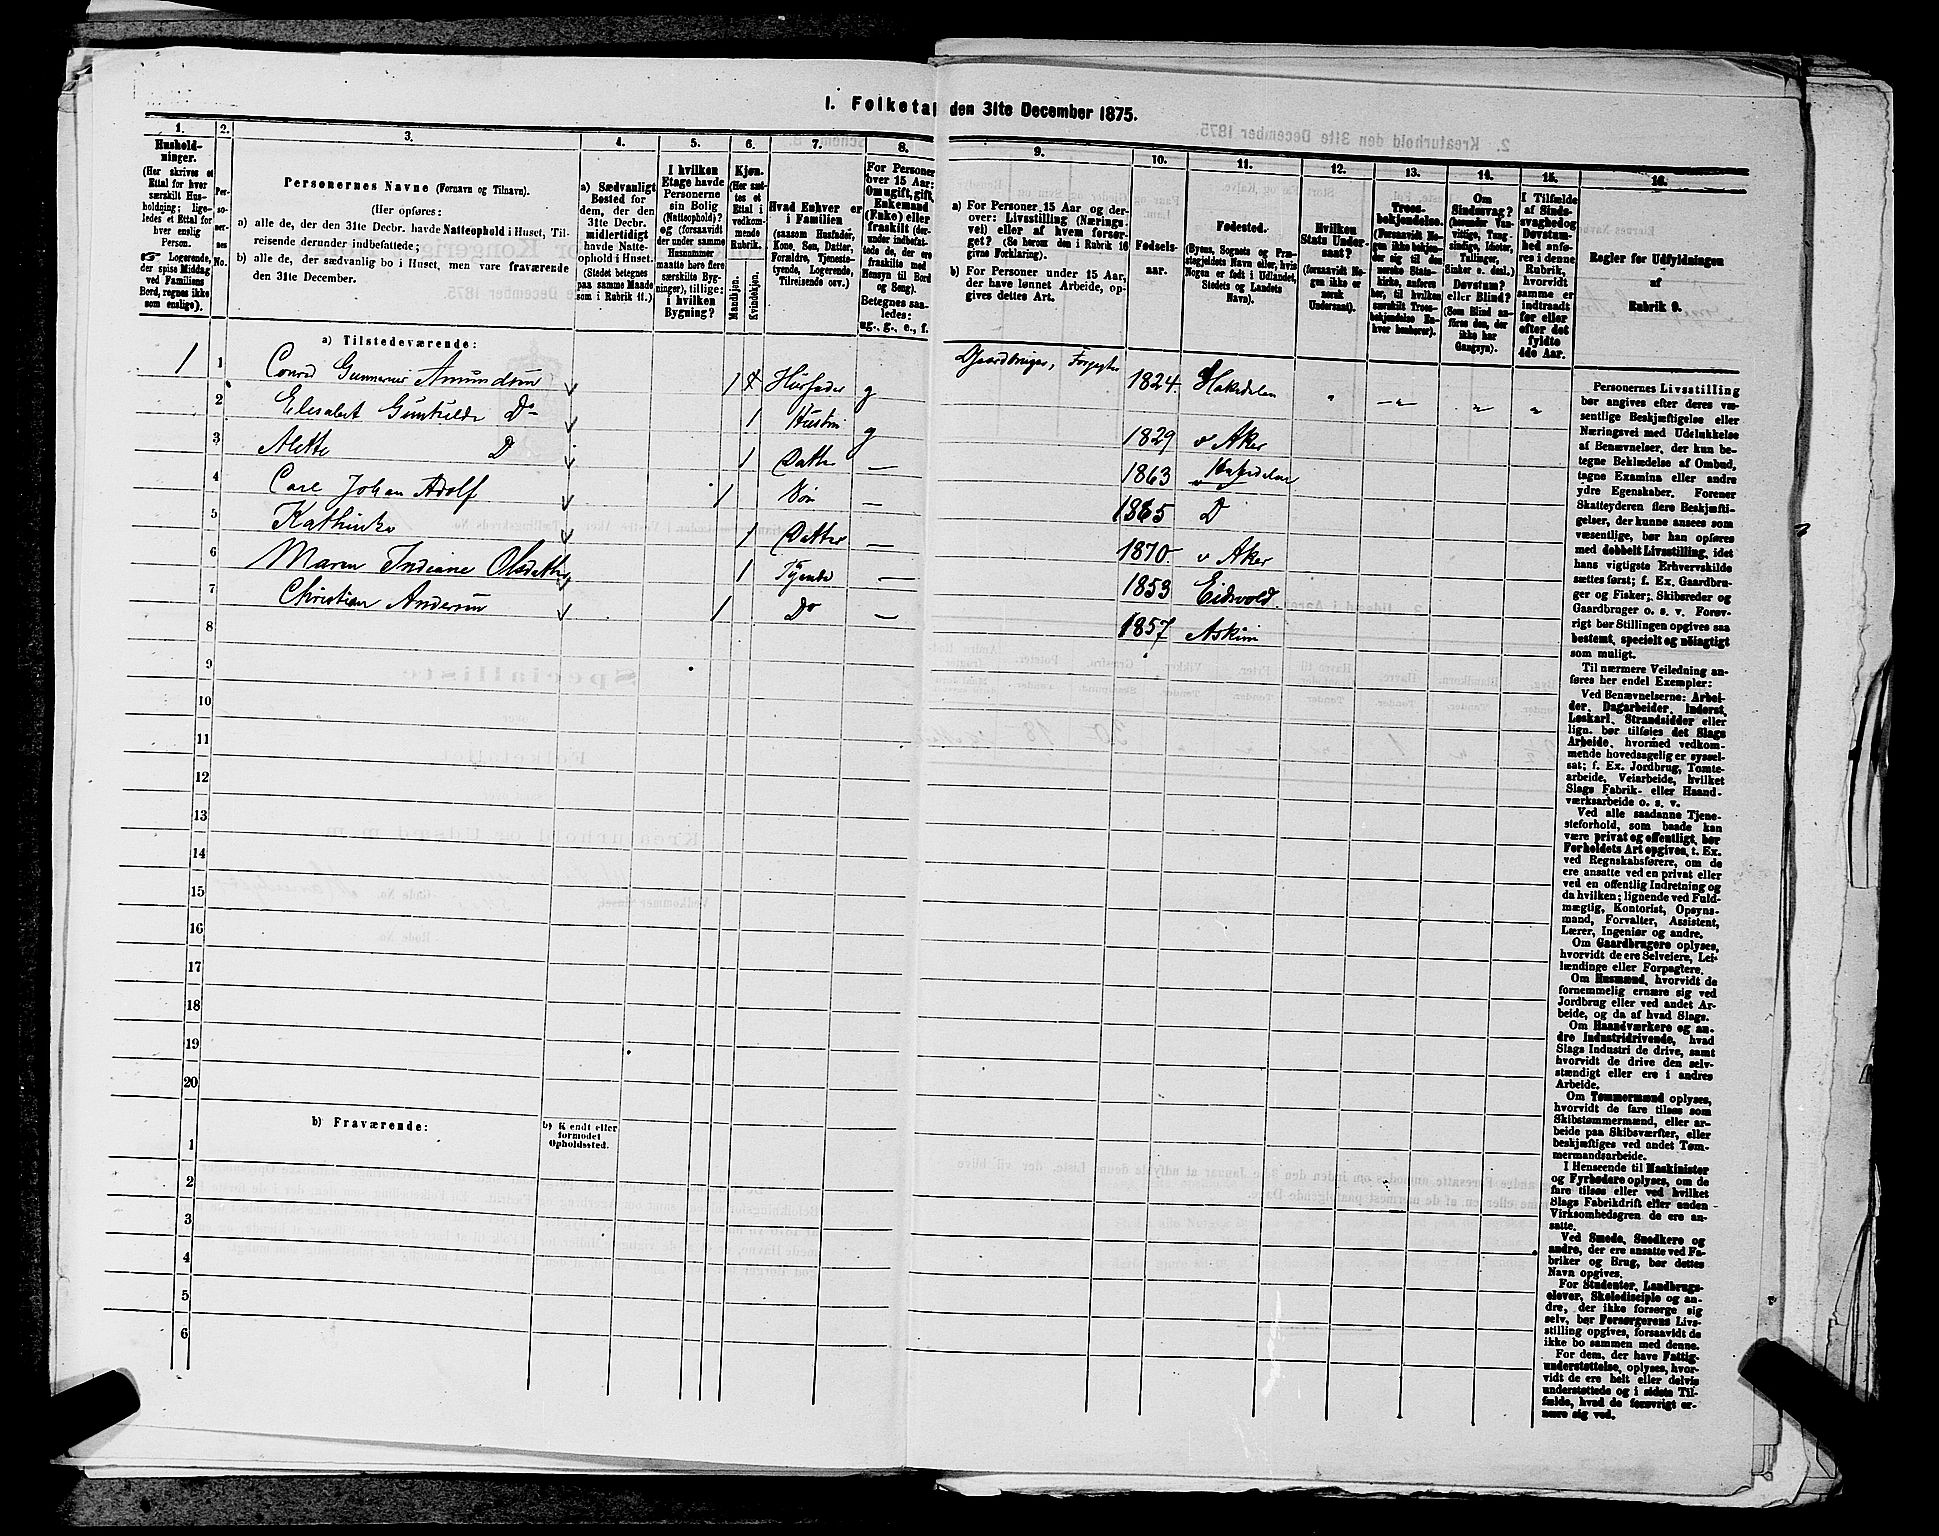 I. Folketal den 31te December 1875.
1.
Hushold-
ninger.
(Her skrives et
Ettal for hver
særskilt Hus-
holdning; lige-
ledes et Ettal for
hver enslig
Person.
Logerende,
der spise Middag
ved Familiens
Bord, regnes ikke
som enslige).
2.
Per-
so-
ner-
nes
No.
3.
Personernes Navne (Fornavn og Tilnavn).
(Her opføres:
a) alle de, der den 31te Decbr. havde Natteophold i Huset, Til-
reisende derunder indbefattede;
b) alle de, der sædvanlig bo i Huset, men vare fraværende
den 31te December.
4.
a) Sædvanligt
Bosted for
dem, der den
31te Decbr.
midlertidigt
havde Natte-
ophold i Huset.
(Stedet betegnes
paa samme Maade
som i Rubrik 11.)
5.
I hvilken
Etage havde
Personerne
sin Bolig
(Natteophold)?
og (forsaavidt
der under samme
Husnummer
maatte høre flere
særskilte Byg-
ninger), tillige:
i hvilken
Bygning?
6.
Kjøn.
(Her sæt-
tes et
Ettal i
vedkom-
mende
Rubrik.
Mandkjøn.
Kvindekjøn.
7.
Hvad Enhver er
i Familien
(saasom Husfader,
Kone, Søn, Datter,
Forældre, Tjeneste-
tyende, Logerende,
Tilreisende osv.)
8.
For Personer
over 15 Aar:
Om ugift, gift,
Enkemand
(Enke) eller
fraskilt (der-
under indbefat-
tede de, der ere
fraskilte med
Hensyn til Bord
og Seng).
Betegnes saa-
ledes:
ug., g., e., f.
9.
a) For Personer 15 Aar og der-
over: Livsstilling (Nærings-
vei) eller af hvem forsør-
get? (Se herom den i Rubrik 16
givne Forklaring).
b) For Personer under 15 Aar,
der have lønnet Arbeide, op-
gives dettes Art.
10.
Fødsels-
aar.
11.
Fødested.
(Byens, Sognets og Præ-
stegjeldets Navn eller, hvis
Nogen er født i Udlandet,
Stedets og Landets
Navn).
12.
Hvilken
Stats Under-
saat?
(forsaavidt No-
gen ikke er
norsk
Undersaat).
13.
Troes-
bekjendelse.
(Forsaavidt No-
gen ikke bekjen-
der sig til den
norske Stats-
kirke, anføres
her, til hvilken
særskilt Troes-
bekjendelse En-
hver henhører).
14.
Om
Sindssvag?
(herunder Van-
vittige, Tung-
sindige, Idioter,
Tullinger,
Sinker o. desl.)
Døvstum?
eller Blind?
(Som Blind an-
føres den, der
ikke har
Gangsyn).
15.
I Tilfælde
af Sinds-
svaghed og
Døvstum-
hed anfø-
res i denne
Rubrik,
hvorvidt
samme er
indtraadt
før eller
efter det
fyldte
4de Aar.
16.
Regler for Udfyldningen
af
Rubrik 9.
a) Tilstedeværende:
1 1 Conrad Gunnerius Amundsen 1 Husfader g Gaardbruger, Forpagter 1824. Hakedalen
2 Elisabet Gunhilde Do 1 Hustru g 1829 v Aker
3 Alette D 1 Datter — 1863 Hakedalen
4 Carl Johan Adolf 1 Søn — 1865 D
5 Kathinka 1 Datter — 1870. v Aker
6 Maren Indiane Olsdatter 1 Tyende — 1853 Eidsvold
7 Christian Andersen 1 Do — 1857 Askim
8
9
10
11
12
13
14
15
16
17
18
19
20
b) Fraværende:
b) Kjendt eller
formodet
Opholdssted.
1
2
3
4
5
6
Personernes Livsstilling
bør angives efter deres væ-
sentlige Beskjæftigelse eller
Næringsvei med Udelukkelse
af Benævnelser, der kun be-
tegne Beklædelse af Ombud,
tagne Examina eller andre
ydre Egenskaber. Forener
Skatteyderen flere Beskjæfti-
gelser, der kunne ansees som
væsentlige, bør han opføres
med dobbelt Livsstilling, idet
hans vigtigste Erhvervskilde
sættes først; f. Ex. Gaardbru-
ger og Fisker; Skibsreder og
Gaardbruger o. s. v. Forøv-
rigt bør Stillingen opgives saa
bestemt, specielt og nøiagtigt
som muligt.
Til nærmere Veiledning an-
føres her endel Exempler:
Ved Benævnelserne: Arbei-
der, Dagarbeider, Inderst,
Løskarl, Strandsidder eller
lign. bør tilføies det Slags
Arbeide, hvormed vedkom-
mende hovedsagelig er syssel-
sat; f. Ex. Jordbrug, Tomte-
arbeide, Veiarbeide, hvilket
Slags Fabrik- eller Haand-
værksarbeide o. s. v.
Ved alle saadanne Tjene-
steforhold, som baade kan
være privat og offentligt, bør
Forholdets Art opgives, f. Ex.
ved Regnskabsførere, om de
ere ansatte ved en privat eller
ved en offentlig Indretning og
da hvilken; lignende ved Fuld-
mægtig, Kontorist, Opsyns-
mand, Forvalter, Assistent,
Lærer, Ingeniør og andre.
Om Gaardbrugere oplyses,
hvorvidt de ere Selveiere, Lei-
lændinge eller Forpagtere.
Om Husmænd, hvorvidt de
fornemmelig ernære sig ved
Jordbrug eller ved andet Ar-
beide, og da af hvad Slags.
Om Haandværkere og an-
dre Industridrivende, hvad
Slags Industri de drive, samt
hvorvidt de drive den selv-
stændigt eller ere i andres
Arbeide.
Om Tømmermænd oplyses,
hvorvidt de fare tilsøs som
Skibstømmermænd, eller ar-
beide paa Skibsværfter, eller
beskjæftiges ved andet Tøm-
mermandsarbeide.
I Henseende til Maskinister
og Fyrbødere oplyses, om de
fare tilsøs eller ved hvilket
Slags Fabrikdrift eller anden
Virksomhedsgren de ere an-
satte.
Ved Smede, Snedkere og
andre, der ere ansatte ved Fa-
briker og Brug, bør dettes
Navn opgives.
For Studenter, Landbrugs-
elever, Skoledisciple og an-
dre, der ikke forsørge sig
selv, bør Forsørgerens Livs-
stilling opgives, forsaavidt de
ikke bo sammen med denne.
For dem, der have Fattig-
understøttelse, oplyses, hvor-
vidt de ere helt eller delvis
understøttede og i sidste Til-
fælde, hvad de forøvrigt er-
nære sig ved.